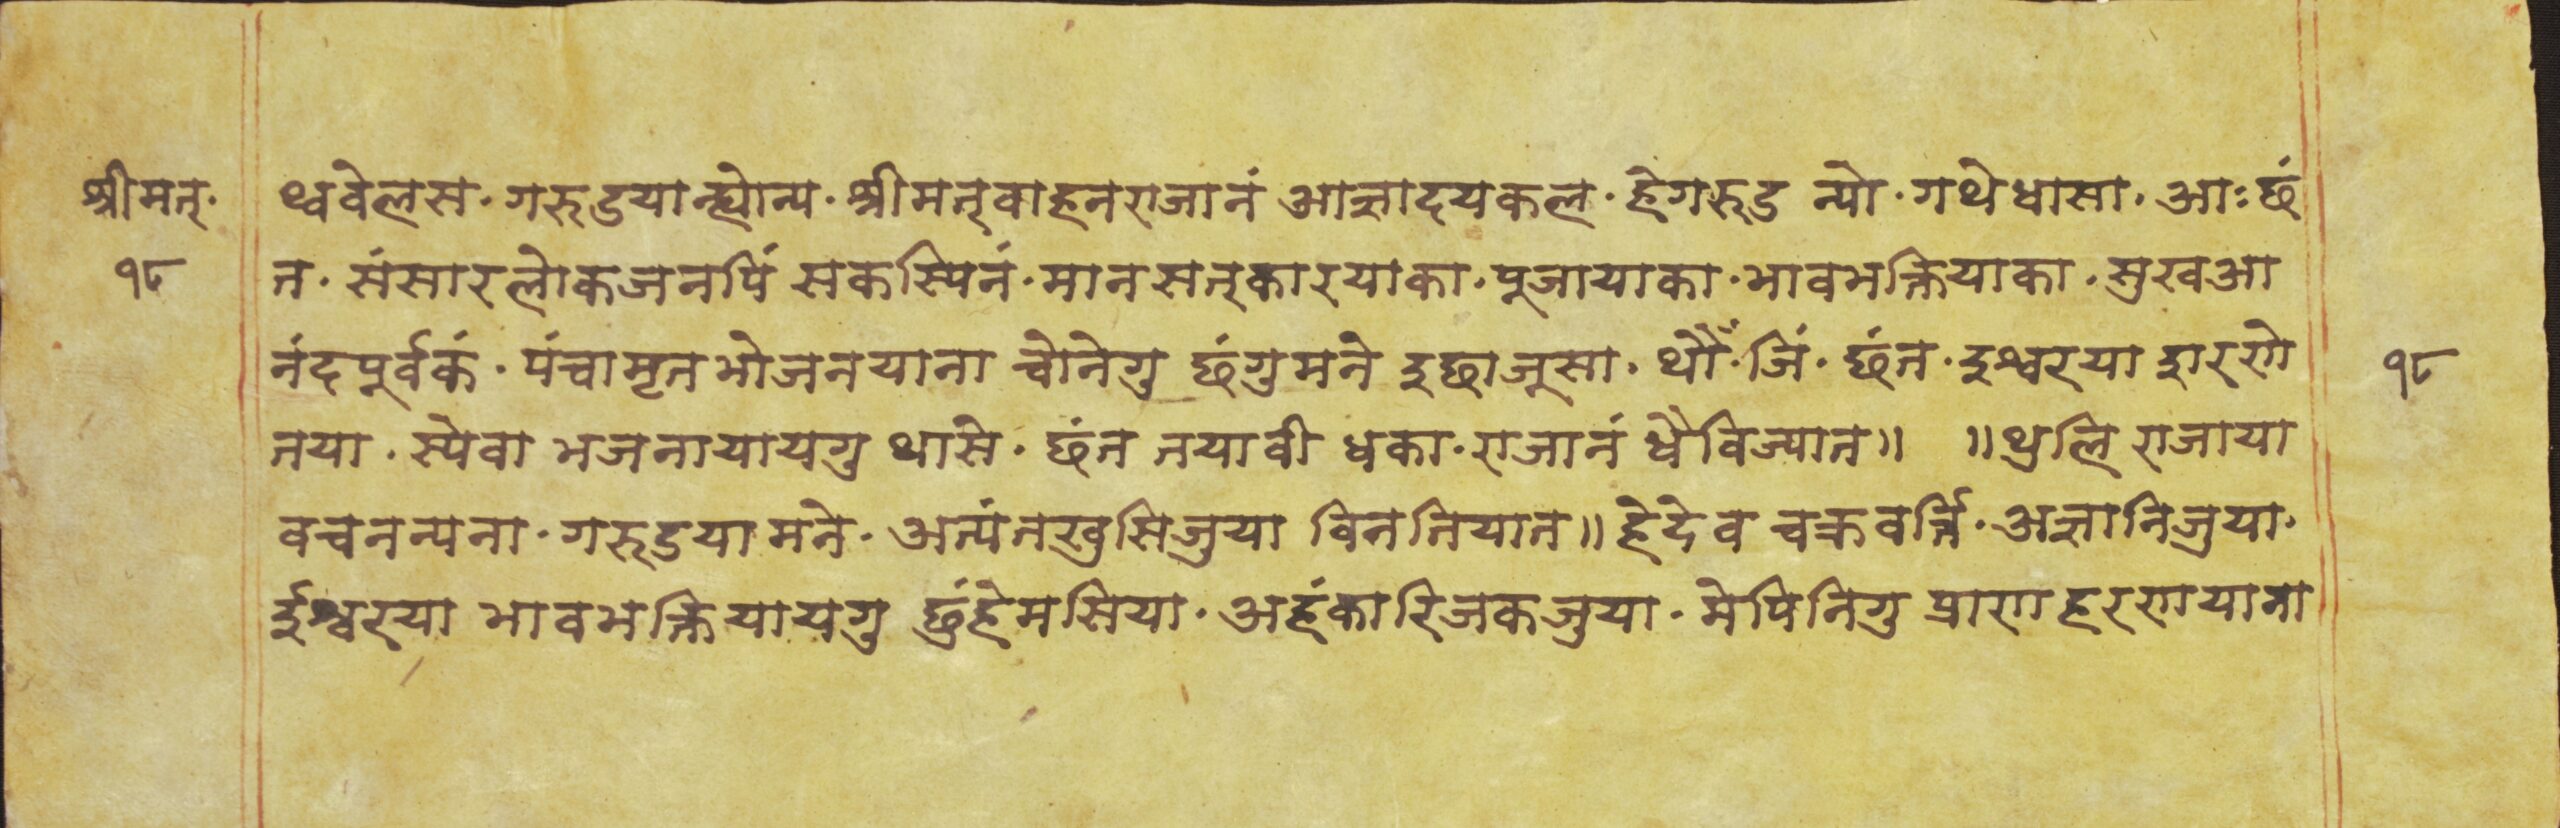 श्रीमत्· थ्ववेलस· गरूडयान्ह्योन्य· श्रीमत्वाहनराजानं आज्ञादयकल· हेगरूड न्यो· गथेधासा· आः छं
१८ त· संसारलोकजनपिं सकस्पिनं· मानसत्कारयाका· पूजायाका· भावभक्तियाका· सुखआ
नंदपूर्वकं· पंचामृतभोजनयाना च्वोनेगु छंगुमने इछाजूसा· थौं· जिं· छंत· इश्वरया द्वाररो १८
तया· स्येवा भजनायायगु थासे· छंत तयावी धका· राजानं धैविज्यात॥ ॥थुलि राजाया
वचनन्यना· गरूडया मने· अत्यंतखुसिजुया विनतियात॥ हेदेव चक्रवर्त्ति· अज्ञानिजुया·
ईश्वरया भावभक्तियायगु छुंहेमसिया· अहंकारिजकजुया· मेपिनिगु प्राण हरणयाना